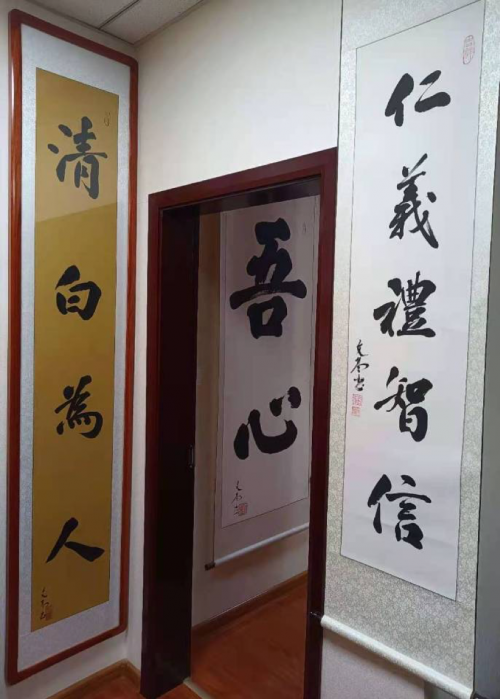 清白為人
吾心
仁義禮智信